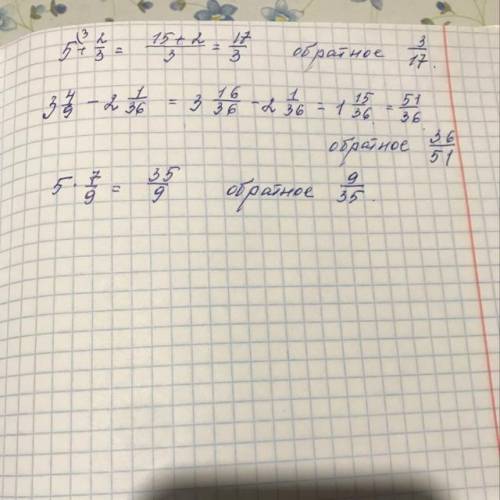 5^{(3} + \frac{2}{3} = \frac{15+2}{3} = \frac{17}{3} обратное \frac{3}{17}.
3\frac{4}{9} - 2\frac{1}{36} = 3\frac{16}{36} - 2\frac{1}{36} = 1\frac{15}{36} = \frac{51}{36}
обратное \frac{36}{51}
5 \cdot \frac{7}{9} = \frac{35}{9} обратное \frac{9}{35}.